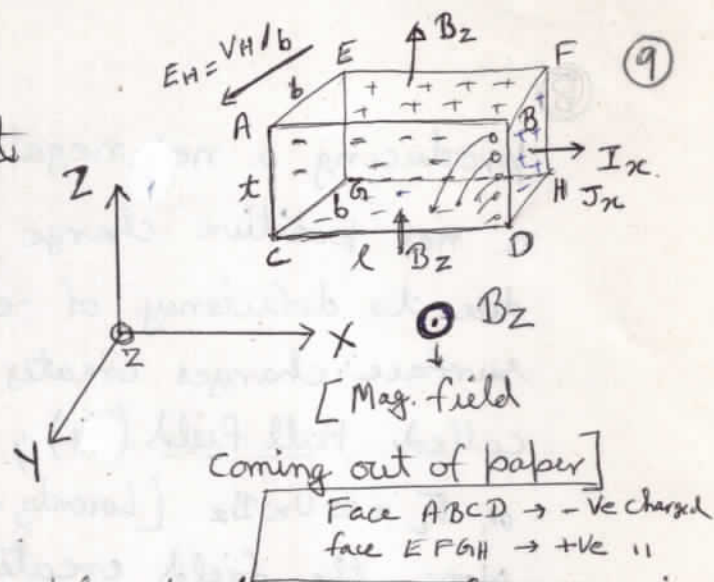 9
E_H = V_H / b
B_Z
E
F
b
+ + + +
+ + + + +
A
B
I_x
J_x
t
G
H
b
C
l
B_Z
D
Z
X
Z
Y
B_Z
[Mag. field
Coming out of paper]
Face ABCD → -ve charged
face EFGH → +ve "